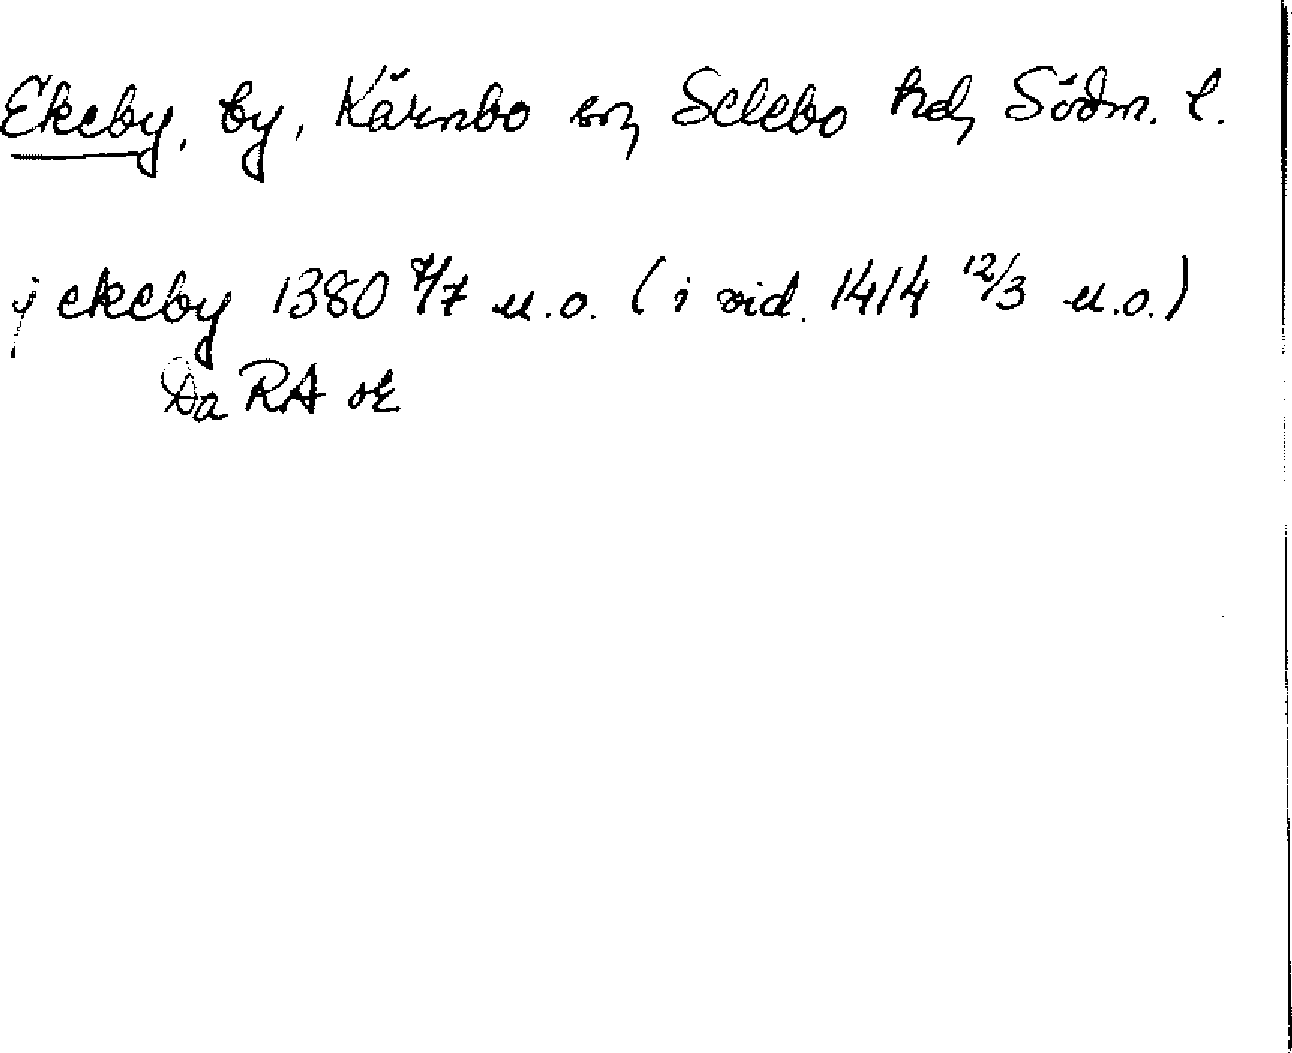 Ekeby, by, Kärnbo sn, Selebo hd, Södm. l.
j ekeby 1380 7/7 u.o. (i vid. 1414 12/3 u.o.)
Da RA